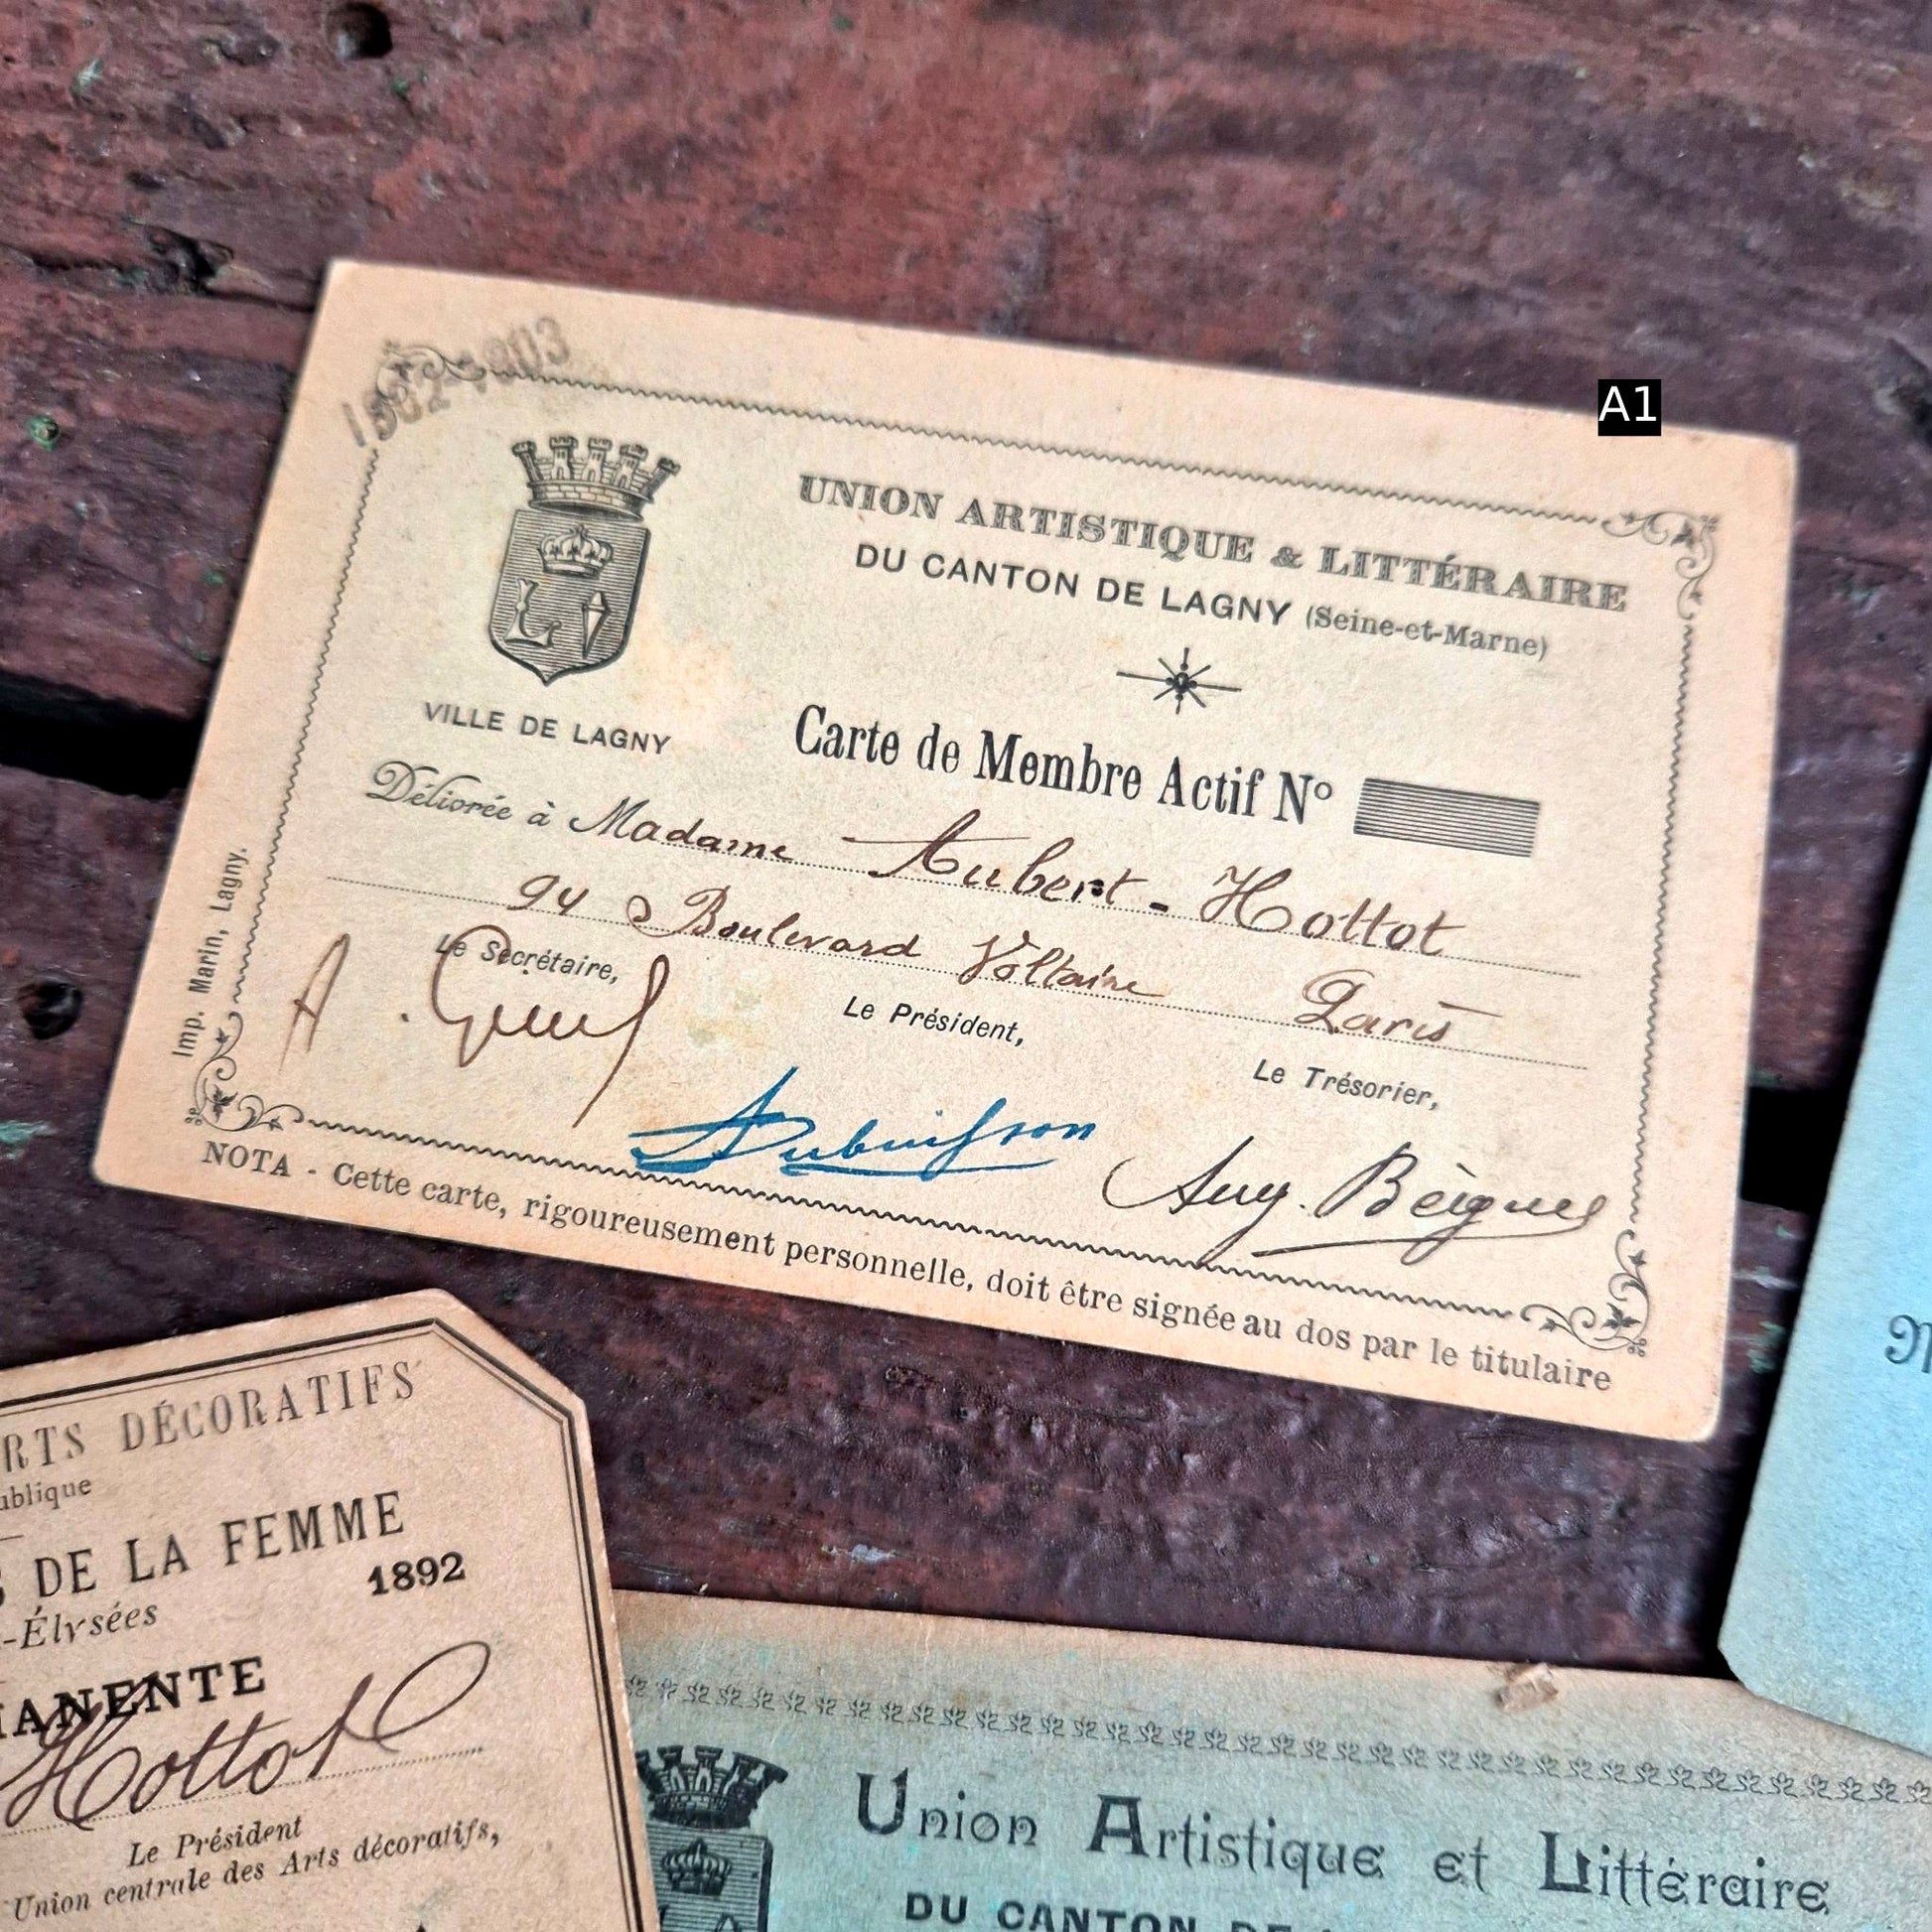 A1
1902-1903
UNION ARTISTIQUE & LITTÉRAIRE
DU CANTON DE LAGNY (Seine-et-Marne)
VILLE DE LAGNY
Carte de Membre Actif N°
Délivrée à Madame Aubert-Hottot
94 Boulevard Voltaire Paris
Le Secrétaire,
Le Président,
Le Trésorier,
A.
Dubuisson
Aug. Béignet
Imp. Marin, Lagny.
NOTA - Cette carte, rigoureusement personnelle, doit être signée au dos par le titulaire
RTS DÉCORATIFS
ublique
S DE LA FEMME
1892
-Élysées
MANENTE
Hottot
Le Président
Union centrale des Arts décoratifs,
Union Artistique et Littéraire
DU CANTON DE